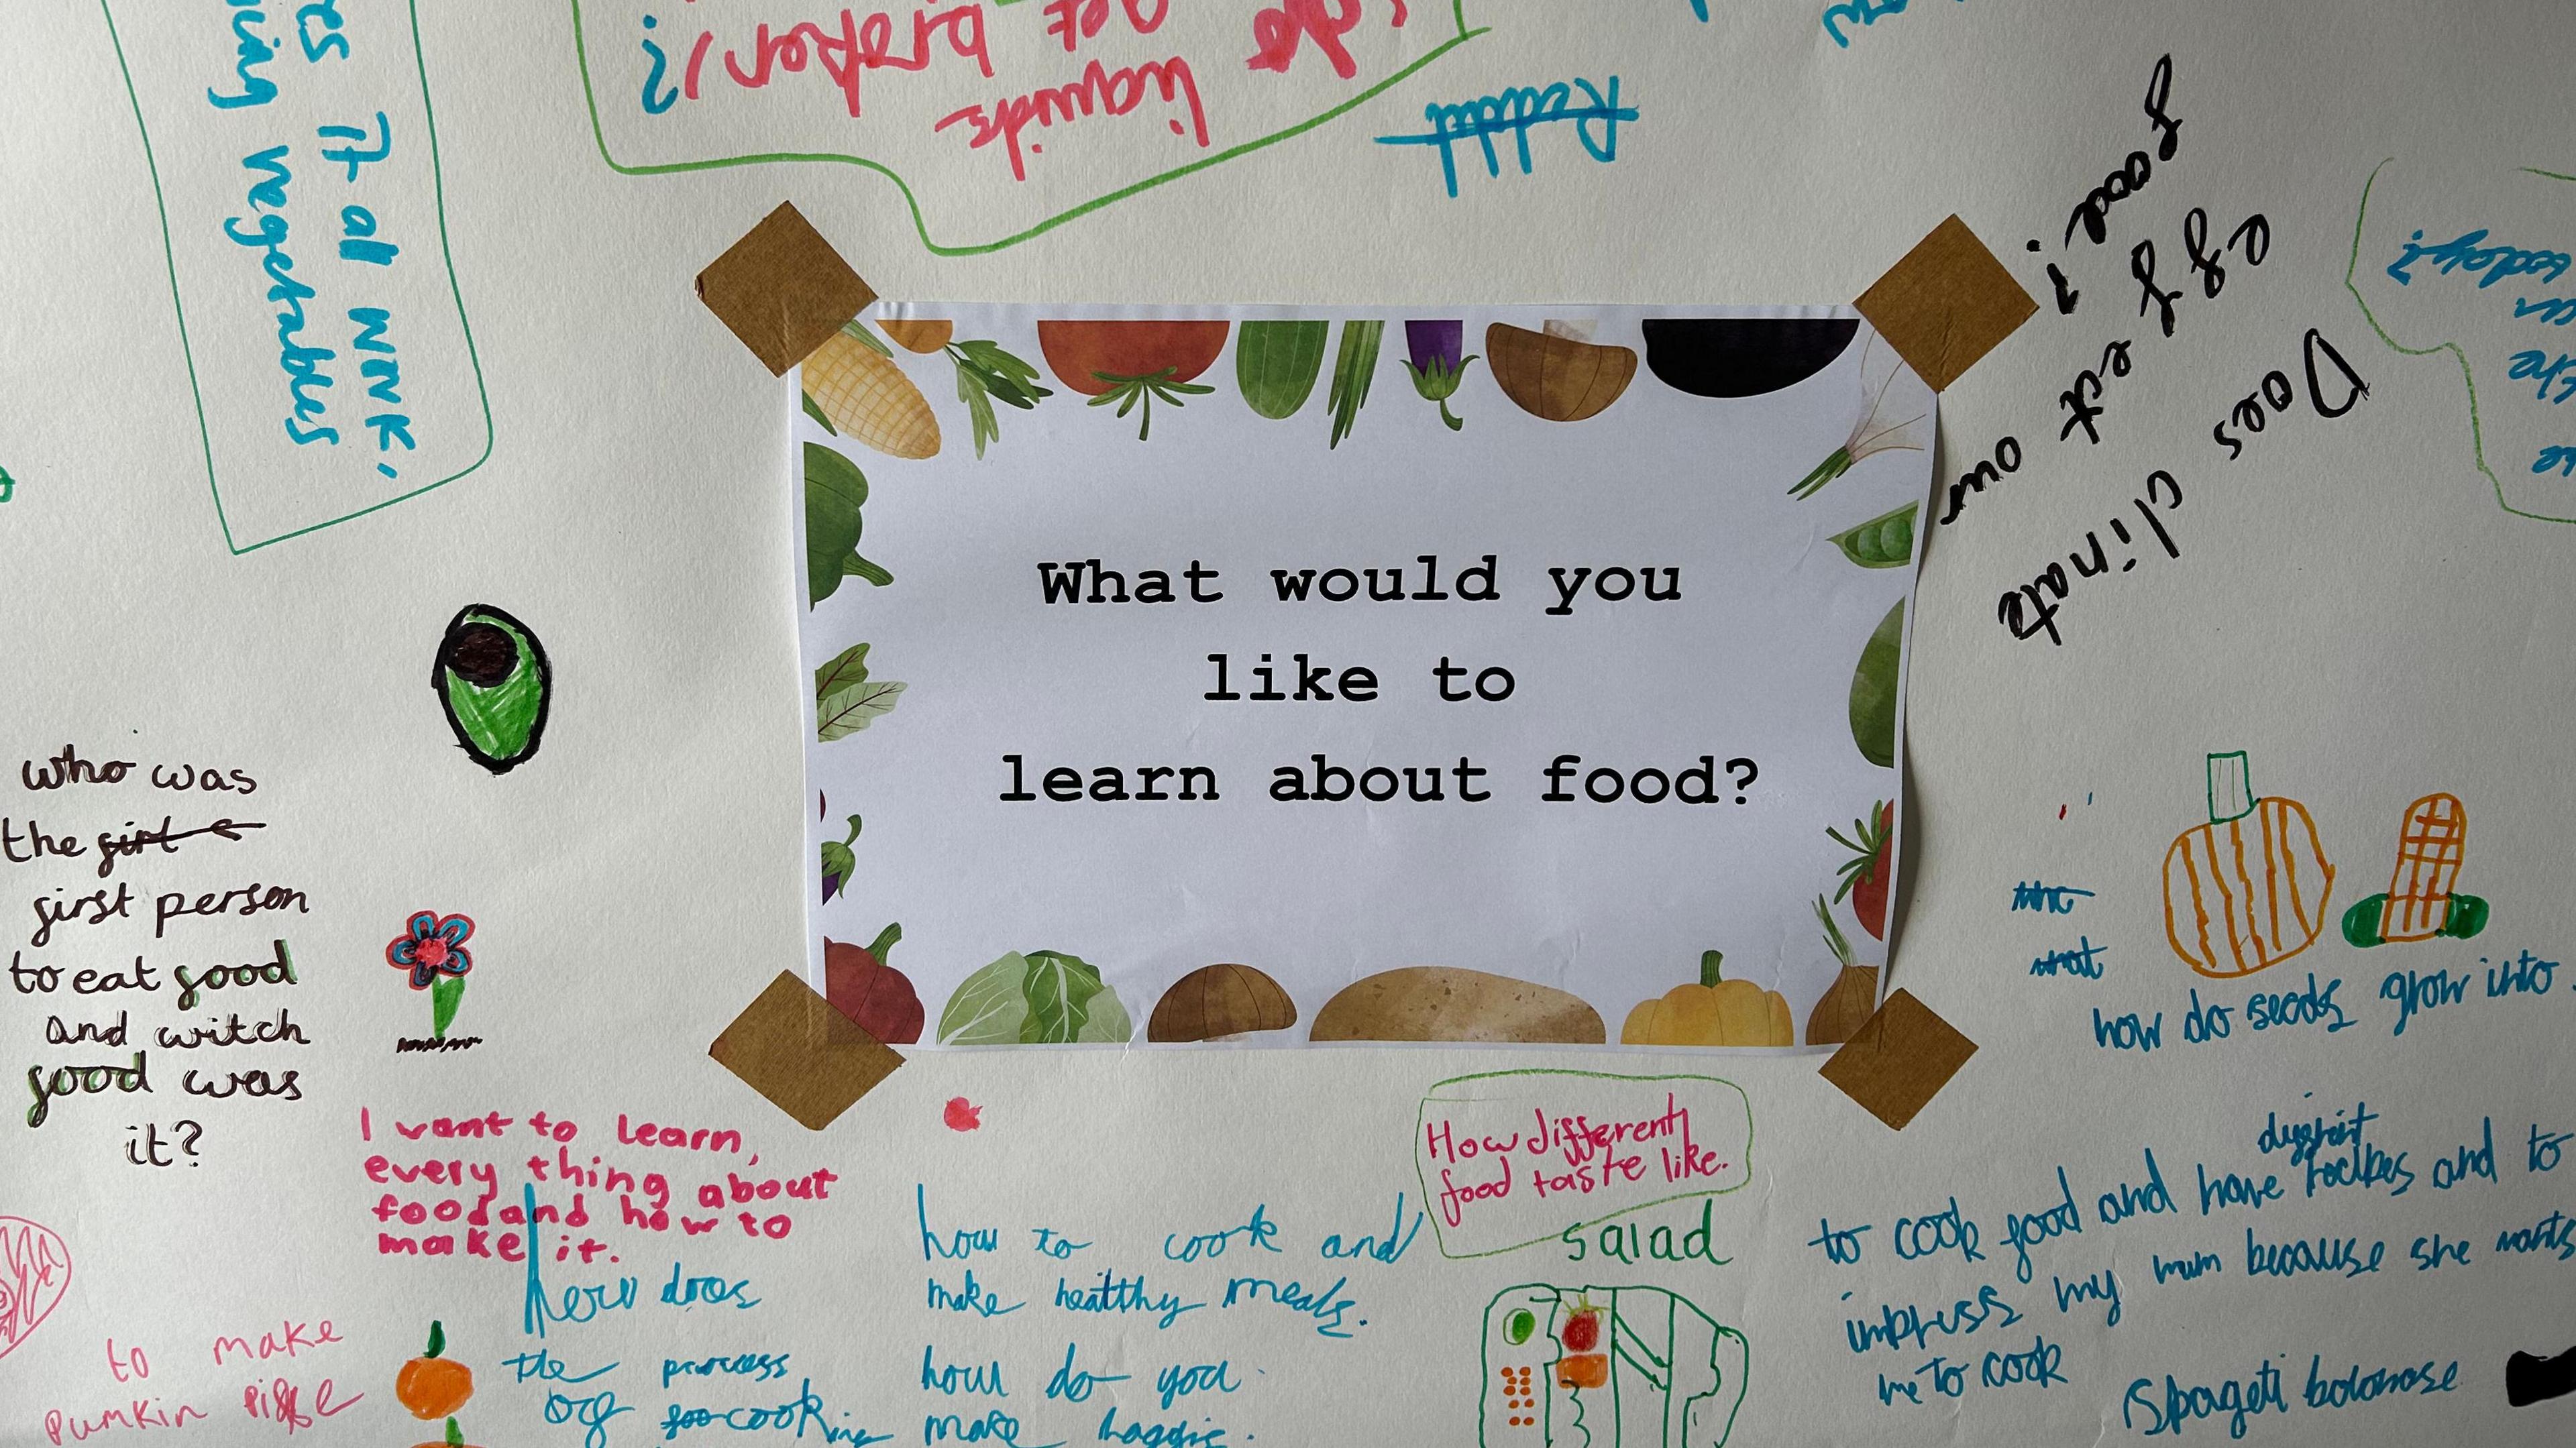 What would you
like to
learn about food?
es It al work.
ing vegetables
liquids
get broken)
??
Reddit
Does climate
effect our
food?
today?
the
who was
the girl
first person
to eat food
and witch
food was
it?
I want to learn,
every thing about
food and how to
make it.
to make
Pumkin
how does
the process
of foo cooking
how to cook and
make healthy meals.
how do you
make haggis.
How different
food taste like.
salad
the
what
how do seeds grow into
to cook food and have recipes and to
impress my mum because she wants
me to cook
Spageti bolonase